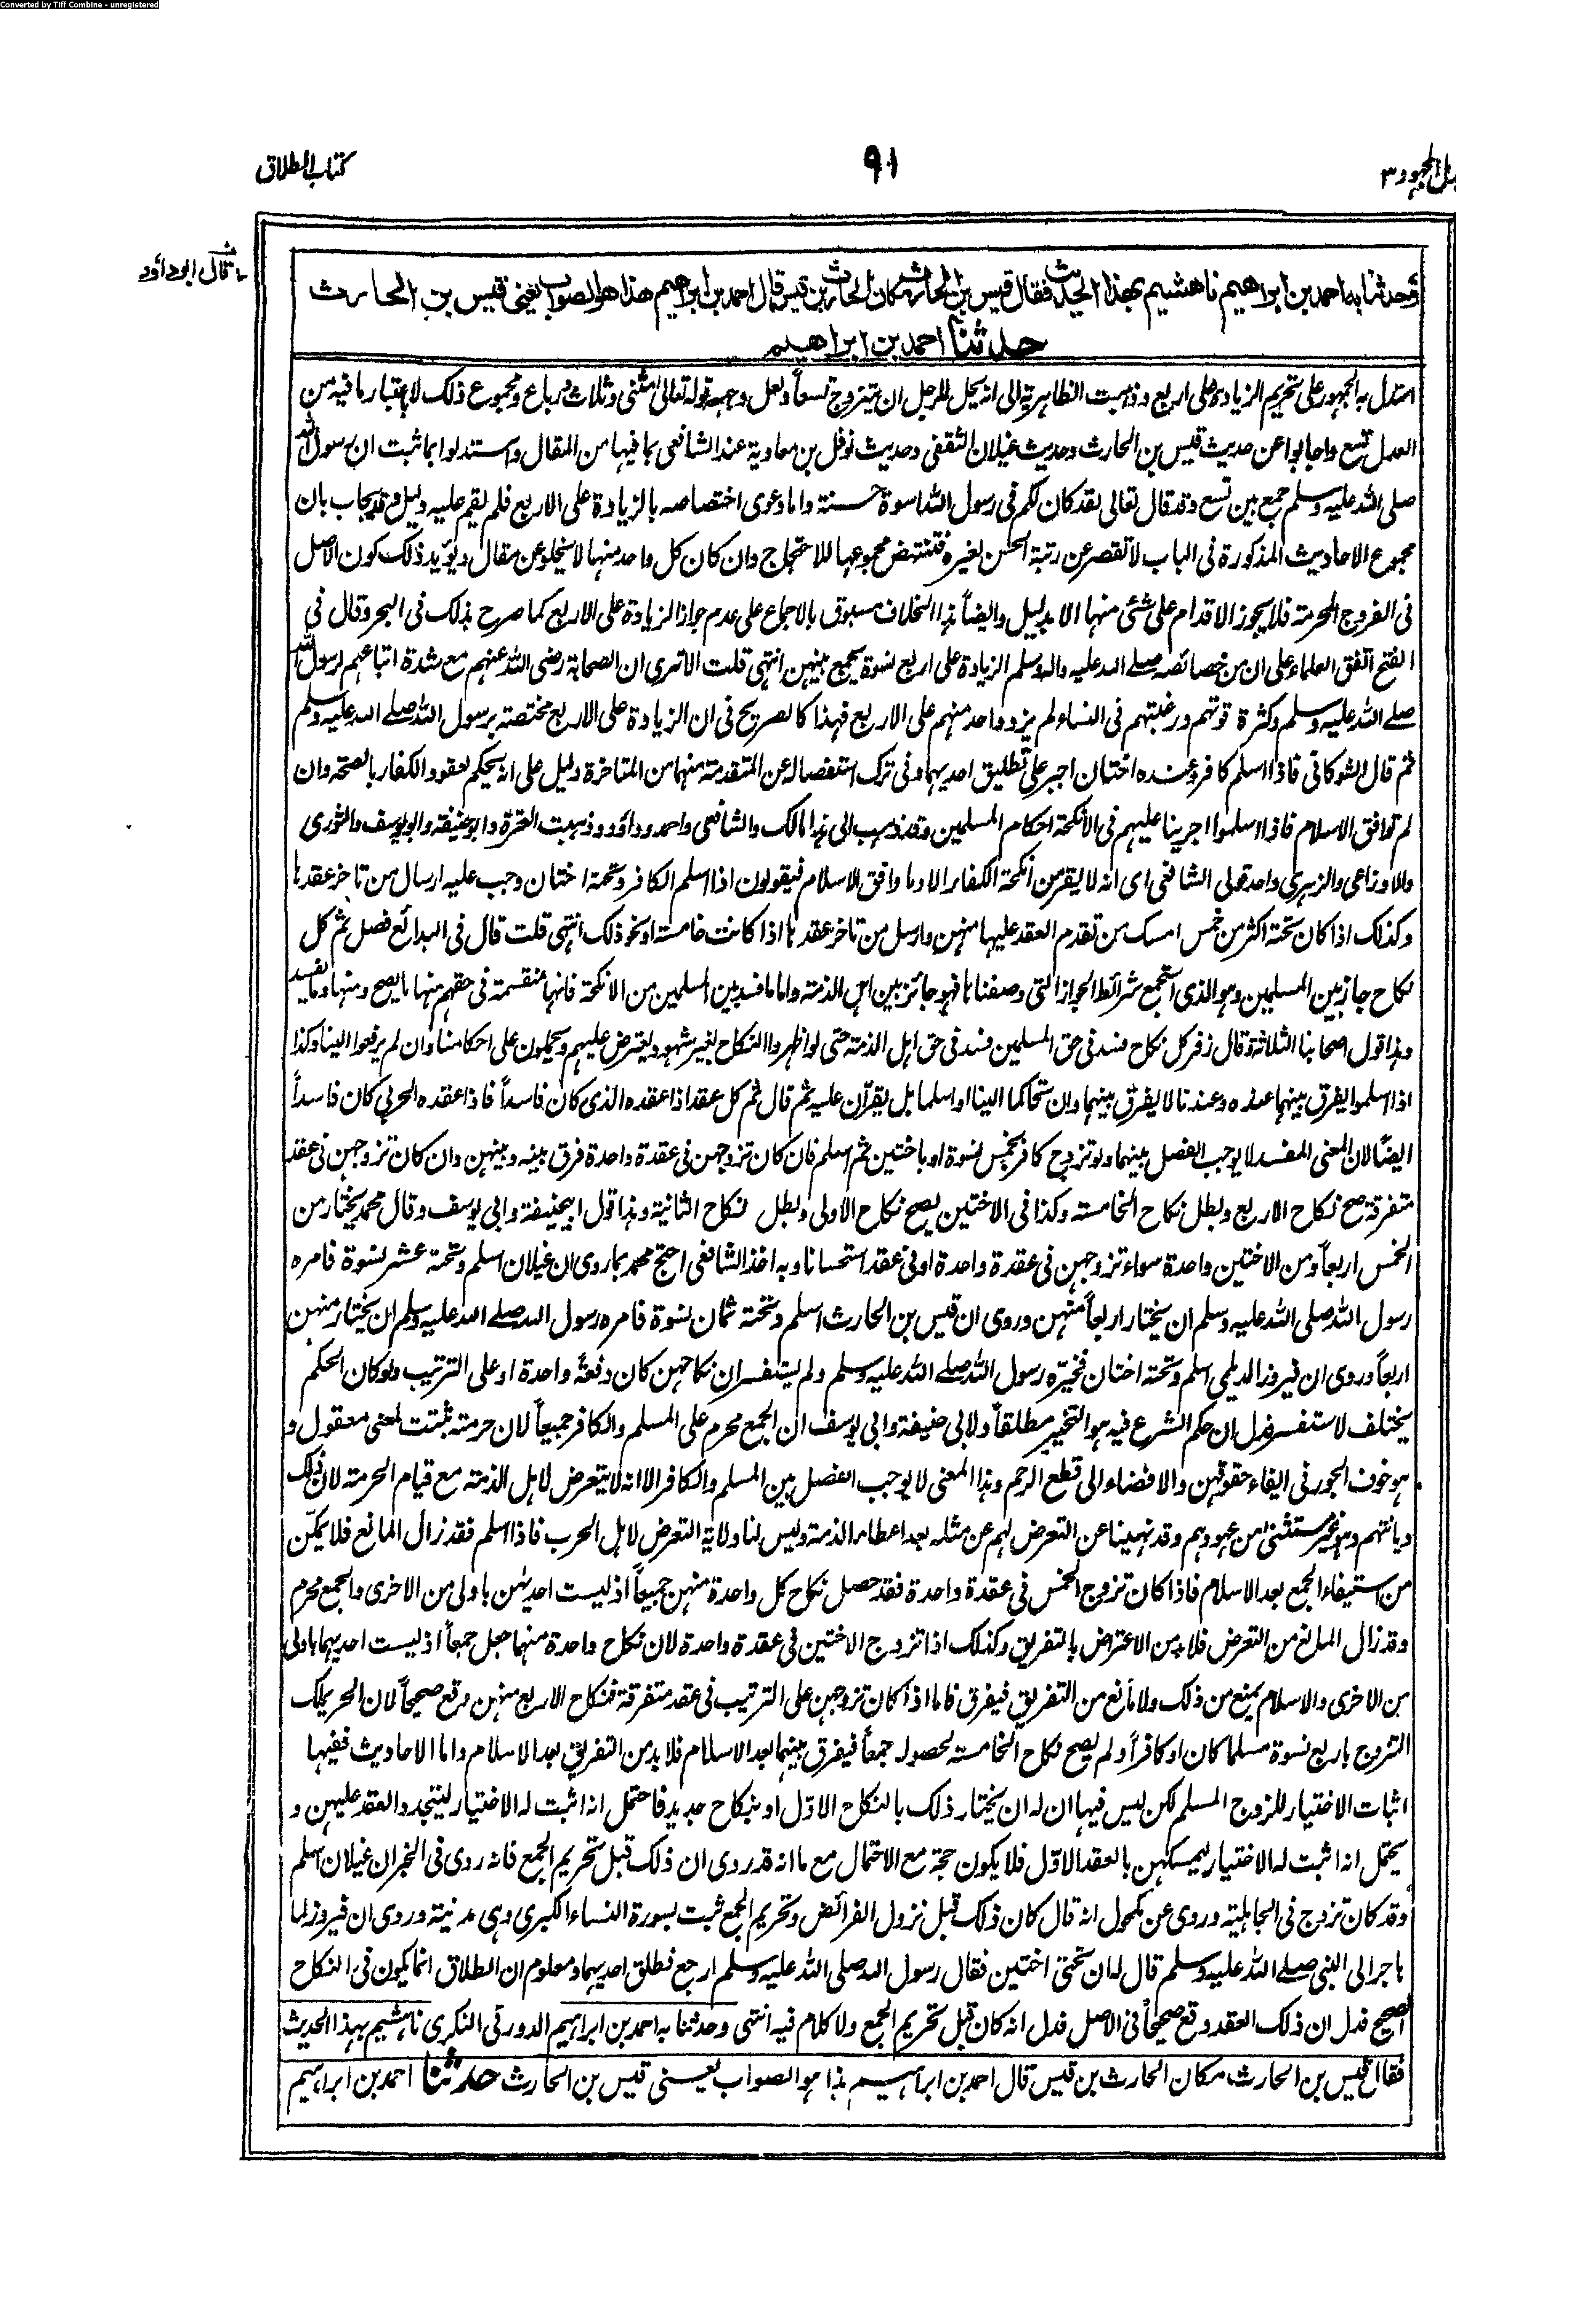 Converted by Tiff Combine - unregistered
بذل المجهود ٣
٩١
كتاب الطلاق
قال ابوداؤد
وحدثنا به احمد بن ابراهيم نا هشيم بهذا الحديث فقال قيس بن الحارث مكان الحارث بن قيس قال احمد بن ابراهيم هذا هو الصواب يعني قيس بن الحارث
حدثنا احمد بن ابراهيم
استدل به الجمهور على تحريم الزيادة على اربع وذهبت الظاهرية الى انه يحل للرجل ان يتزوج تسعاً ولعل وجهه قوله تعالى مثنى وثلاث ورباع ومجموع ذلك لا باعتبار ما فيه من
العدل تسع واجابوا عن حديث قيس بن الحارث وحديث غيلان الثقفى وحديث نوفل بن معاوية عند الشافعى بما فيها من المقال واستدلوا بما ثبت ان رسول الله
صلى الله عليه وسلم جمع بين تسع وقد قال تعالى لقد كان لكم فى رسول الله اسوة حسنة واما دعوى اختصاصه بالزيادة على الاربع فلم يقم عليه دليل وقد يجاب بان
مجموع الاحاديث المذكورة فى الباب لا تقصر عن رتبة الحسن لغيره فتنتهض بمجموعها للاحتجاج وان كان كل واحد منها لا يخلو عن مقال ويؤيد ذلك كون الاصل
فى الفروج الحرمة فلا يجوز الاقدام على شئ منها الا بدليل وايضاً هذا الخلاف مسبوق بالاجماع على عدم جواز الزيادة على الاربع كما صرح بذلك فى البحر وقال فى
الفتح اتفق العلماء على ان من خصائصه صلى الله عليه واله وسلم الزيادة على اربع نسوة يجمع بينهن انتهى قلت الا ترى ان الصحابة رضى الله عنهم مع شدة اتباعهم لرسول الله
صلى الله عليه وسلم وكثرة قوتهم ورغبتهم فى النساء لم يزد واحد منهم على الاربع فهذا كالصريح فى ان الزيادة على الاربع مختصة برسول الله صلى الله عليه وسلم
ثم قال الشوكانى فاذا اسلم كافر وعنده اختان اجبر على تطليق احديهما وفى ترك استفصاله عن المتقدمة منهما من المتاخرة دليل على انه يحكم لعقود الكفار بالصحة وان
لم توافق الاسلام فاذا اسلموا اجرينا عليهم فى الانكحة احكام المسلمين وقد ذهب الى هذا مالك والشافعى واحمد وداؤد وذهبت العترة وابو حنيفة وابو يوسف والثورى
والاوزاعى والزهرى واحد قولى الشافعى اى انه لا يقر من انكحة الكفار الا ما وافق الاسلام فيقولون اذا اسلم الكافر وتحته اختان وجب عليه ارسال من تاخر عقدها
وكذلك اذا كان تحته اكثر من خمس امسك من تقدم العقد عليها منهن وارسل من تاخر عقدها اذا كانت خامسة او نحو ذلك انتهى قلت قال فى البدائع فصل ثم كل
نكاح جاز بين المسلمين وهو الذى استجمع شرائط الجواز التى وصفناها فهو جائز بين اهل الذمة واما ما فسد بين المسلمين من الانكحة فانها منقسمة فى حقهم منها ما يصح ومنها ما يفسد
وهذا قول اصحابنا الثلاثة وقال زفر كل نكاح فسد فى حق المسلمين فسد فى حق اهل الذمة حتى لو اظهروا النكاح بغير شهود يعترض عليهم ويحملون على احكامنا وان لم يرفعوا الينا وكذا
اذا اسلموا يفرق بينهما عنده وعندنا لا يفرق بينهما وان تحاكما الينا او اسلما بل يقران عليه ثم قال ثم كل عقد اذا عقده الذى كان فاسداً فاذا عقده الحربى كان فاسداً
ايضاً لان المعنى المفسد لا يوجب الفصل بينهما ولو تزوج كافر بخمس نسوة او باختين ثم اسلم فان كان تزوجهن فى عقدة واحدة فرق بينه وبينهن وان كان تزوجهن فى عقد
متفرقة صح نكاح الاربع وبطل نكاح الخامسة وكذا فى الاختين يصح نكاح الاولى وبطل نكاح الثانية وهذا قول ابيحنيفة وابى يوسف وقال محمد يختار من
الخمس اربعاً ومن الاختين واحدة سواء تزوجهن فى عقدة واحدة او فى عقد استحسانا وبه اخذ الشافعى احتج محمد بما روى ان غيلان اسلم وتحته عشر نسوة فامره
رسول الله صلى الله عليه وسلم ان يختار اربعاً منهن وروى ان قيس بن الحارث اسلم وتحته ثمان نسوة فامره رسول الله صلى الله عليه وسلم ان يختار منهن
اربعاً وروى ان فيروز الديلمى اسلم وتحته اختان فخيره رسول الله صلى الله عليه وسلم ولم يستفسر ان نكاحهن كان دفعةً واحدة او على الترتيب ولو كان الحكم
يختلف لاستفسر فدل ان حكم الشرع فيه هو التخيير مطلقاً ولابى حنيفة وابى يوسف ان الجمع محرم على المسلم والكافر جميعاً لان حرمته ثبتت لمعنى معقول و
هو خوف الجور فى ايفاء حقوقهن والافضاء الى قطع الرحم وهذا المعنى لا يوجب الفصل بين المسلم والكافر الا انه لا يتعرض لاهل الذمة مع قيام الحرمة لان ذلك
ديانتهم وهو غير مستثنى من عهودهم وقد نهينا عن التعرض لهم عن مثله بعد اعطاء الذمة وليس لنا ولاية التعرض لاهل الحرب فاذا اسلم فقد زال المانع فلا يمكن
من استيفاء الجمع بعد الاسلام فاذا كان تزوج الخمس فى عقدة واحدة فقد حصل نكاح كل واحدة منهن جميعاً اذ ليست احديهن باولى من الاخرى والجمع محرم
وقد زال المانع من التعرض فلا بد من الاعتراض بالتفريق وكذلك اذا تزوج الاختين فى عقدة واحدة لان نكاح واحدة منهما جعل جمعاً اذ ليست احديهما باولى
من الاخرى والاسلام يمنع من ذلك ولا مانع من التفريق فيفرق فاما اذا كان تزوجهن على الترتيب فى عقد متفرقة فنكاح الاربع منهن وقع صحيحاً لان الحر يملك
التزوج باربع نسوة مسلما كان او كافراً ولم يصح نكاح الخامسة لحصوله جمعاً فيفرق بينهما بعد الاسلام فلا بد من التفريق بعد الاسلام واما الاحاديث ففيها
اثبات الاختيار للزوج المسلم لكن ليس فيها ان له ان يختار ذلك بالنكاح الاول او بنكاح جديد فاحتمل انه اثبت له الاختيار ليتجدد العقد عليهن و
يحتمل انه اثبت له الاختيار ليمسكهن بالعقد الاول فلا يكون حجة مع الاحتمال مع ما انه قد روى ان ذلك قبل تحريم الجمع فانه روى فى الخبر ان غيلان اسلم
وقد كان تزوج فى الجاهلية وروى عن مكحول انه قال كان ذلك قبل نزول الفرائض وتحريم الجمع ثبت بسورة النساء الكبرى وهى مدنية وروى ان فيروز لما
هاجر الى النبى صلى الله عليه وسلم قال له ان تحتى اختين فقال رسول الله صلى الله عليه وسلم ارجع فطلق احديهما ومعلوم ان الطلاق انما يكون فى النكاح
الصحيح فدل ان ذلك العقد وقع صحيحاً فى الاصل فدل انه كان قبل تحريم الجمع ولا كلام فيه انتهى وحدثنا به احمد بن ابراهيم الدورقى النكرى نا هشيم بهذا الحديث
فقال قيس بن الحارث مكان الحارث بن قيس قال احمد بن ابراهيم هذا هو الصواب يعنى قيس بن الحارث حدثنا احمد بن ابراهيم